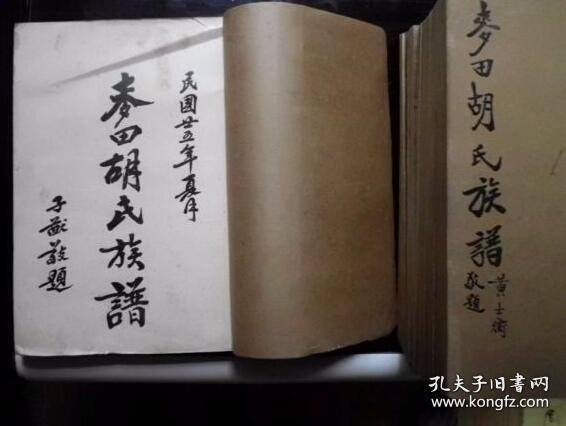 民國廿五年夏月
麥田胡氏族譜
子猷敬題
麥田胡氏族譜
黃士衡
敬題
孔夫子旧书网
www.kongfz.com